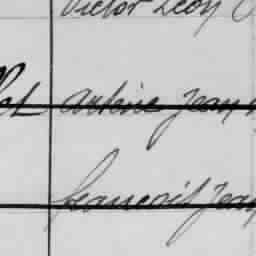 Victor Léon
Antoine Jean
François Jean